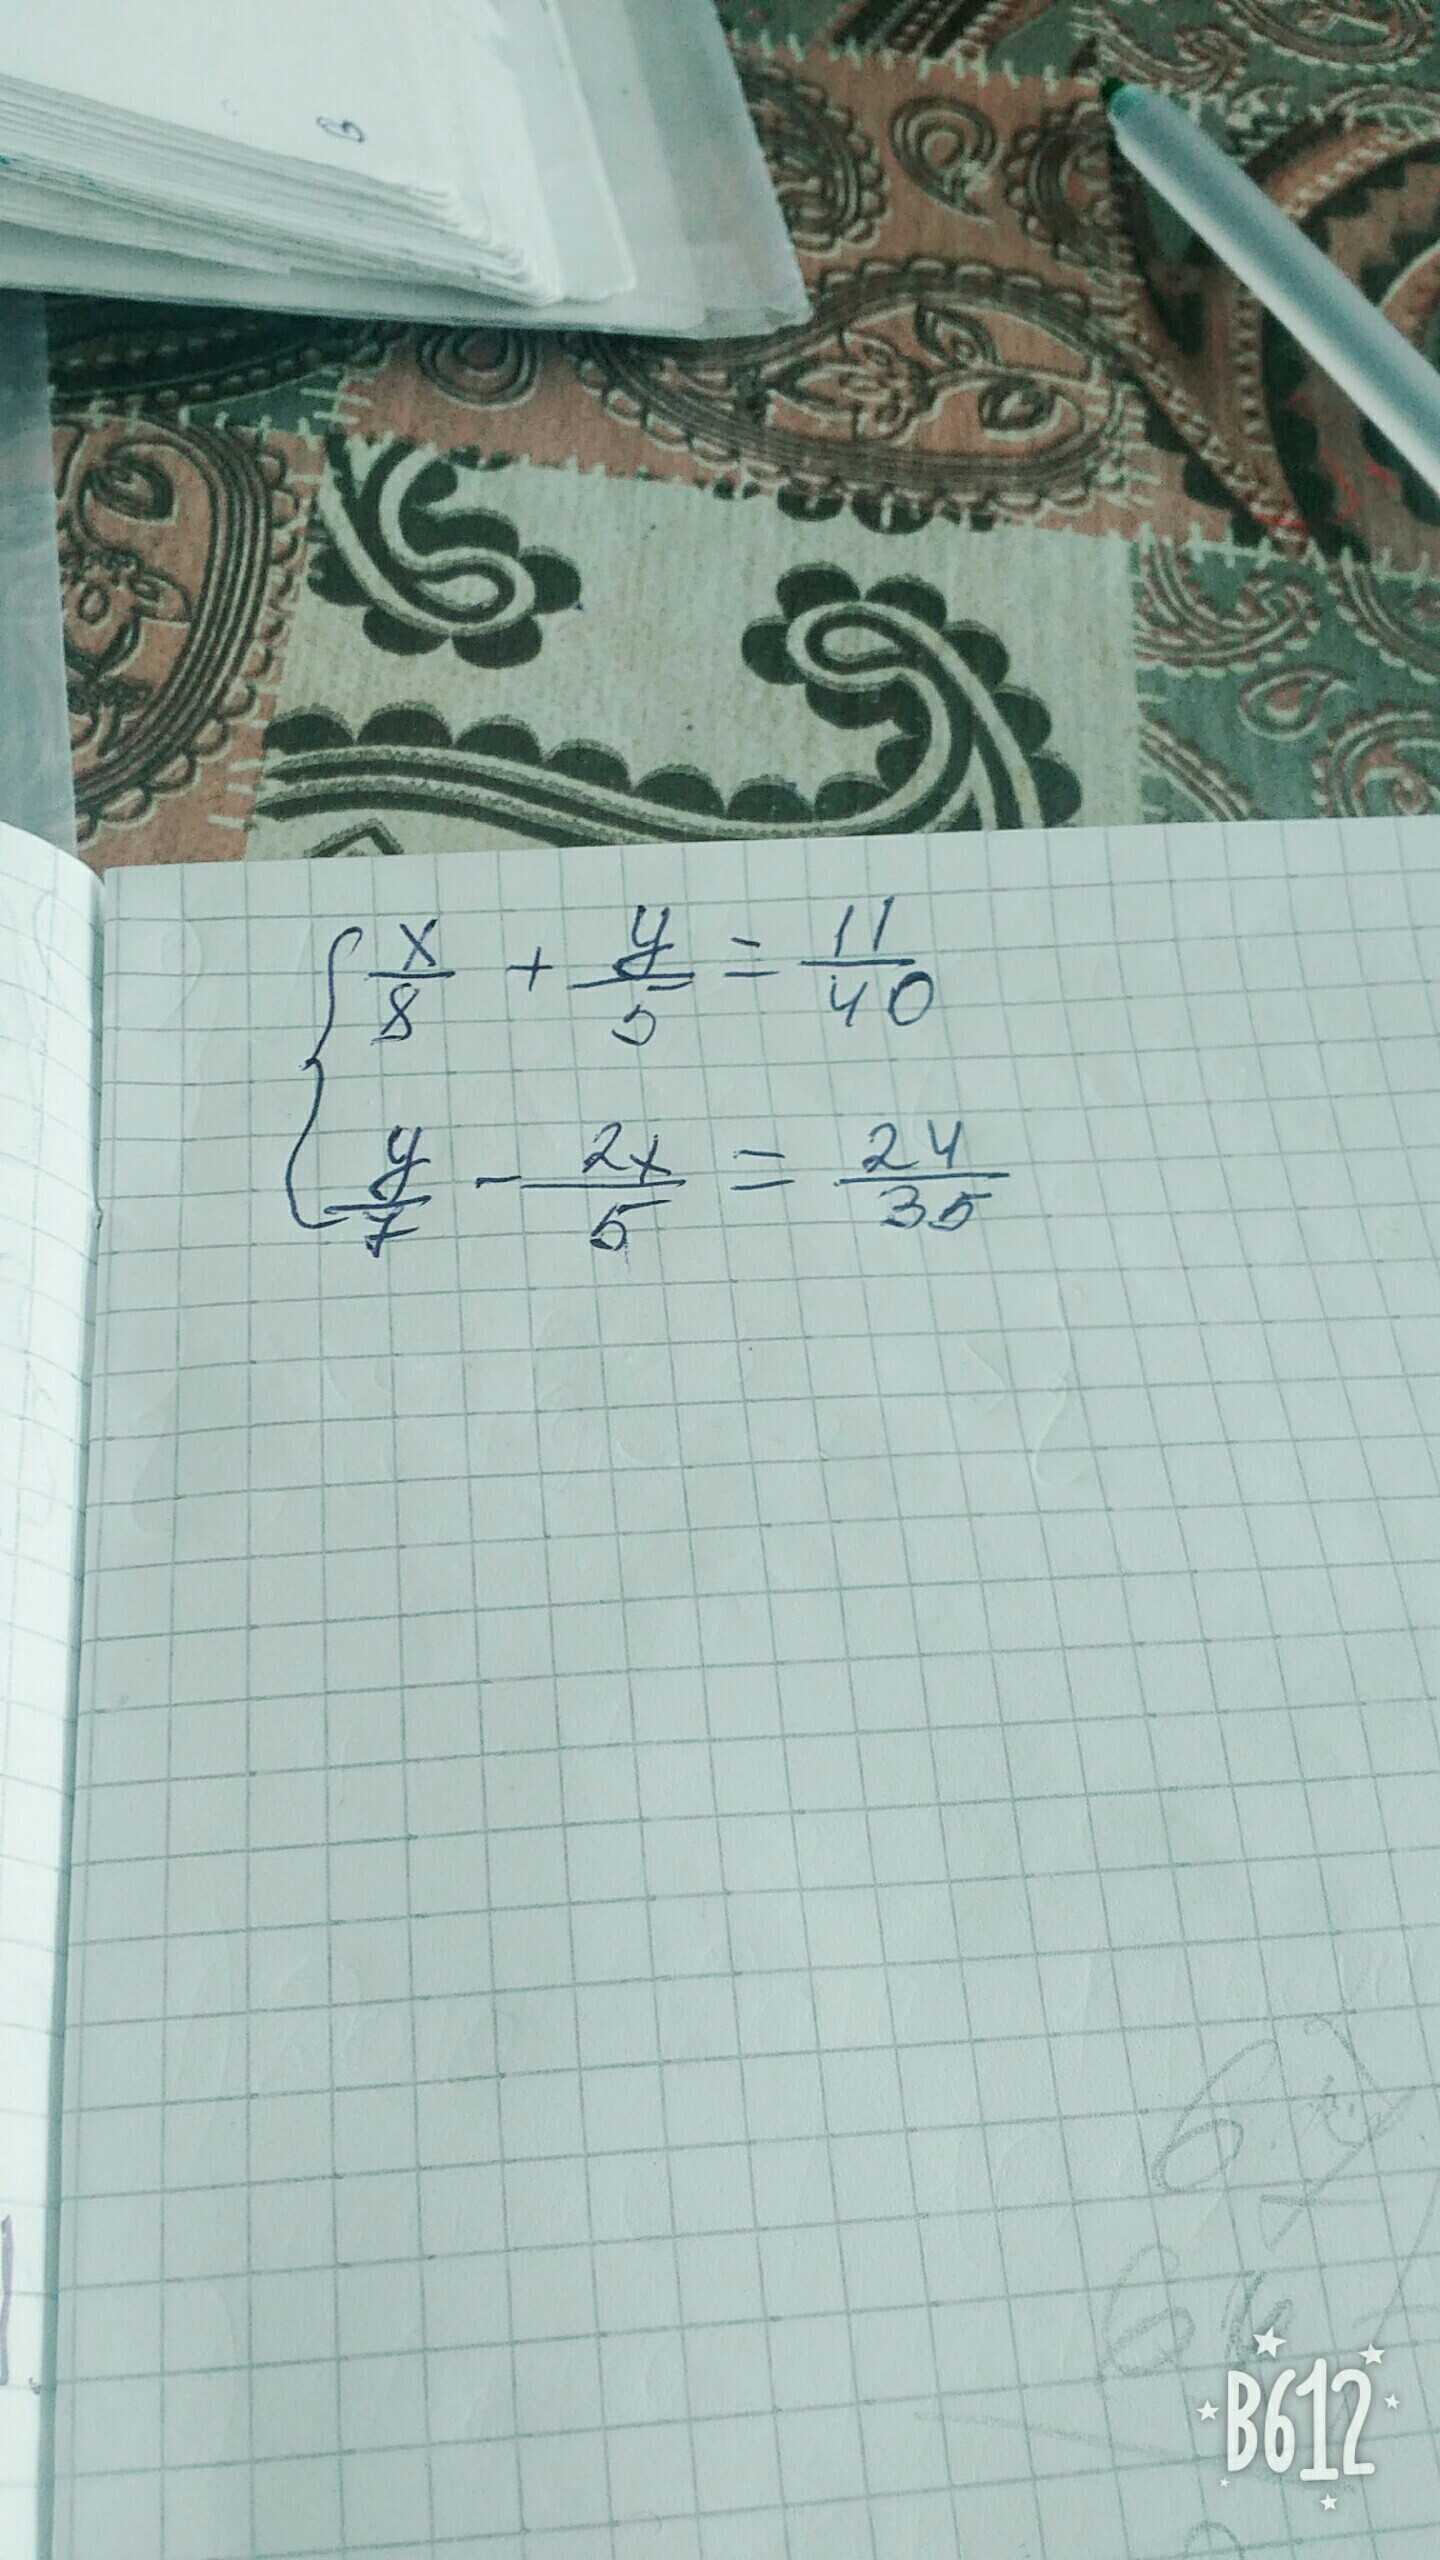 x/8 + y/5 = 11/40
y/7 - 2x/5 = 24/35
B612